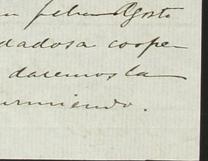 Agosto
dadosa coope-
daremos la
urmiendo.